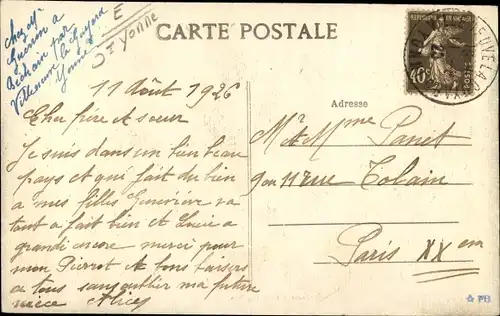 Chez Mr
Guenin a
Béchain par
Villeneuve la Guyard
Yonne
E
St Yonne
CARTE POSTALE
REPUBLIQUE FRANCAISE
40c
POSTES
11 Août 1926
Cher frère & sœur
Je suis dans un bien beau
pays et qui fait du bien
a mes filles Geneviève va
tout a fait bien & Lucie a
grandi encore merci pour
mon Pierrot & bons baisers
a tous sans oublier ma future
nièce Alice
Adresse
Mr & Mme Panet
9 ou 11 rue Tolain
Paris XXem
PB